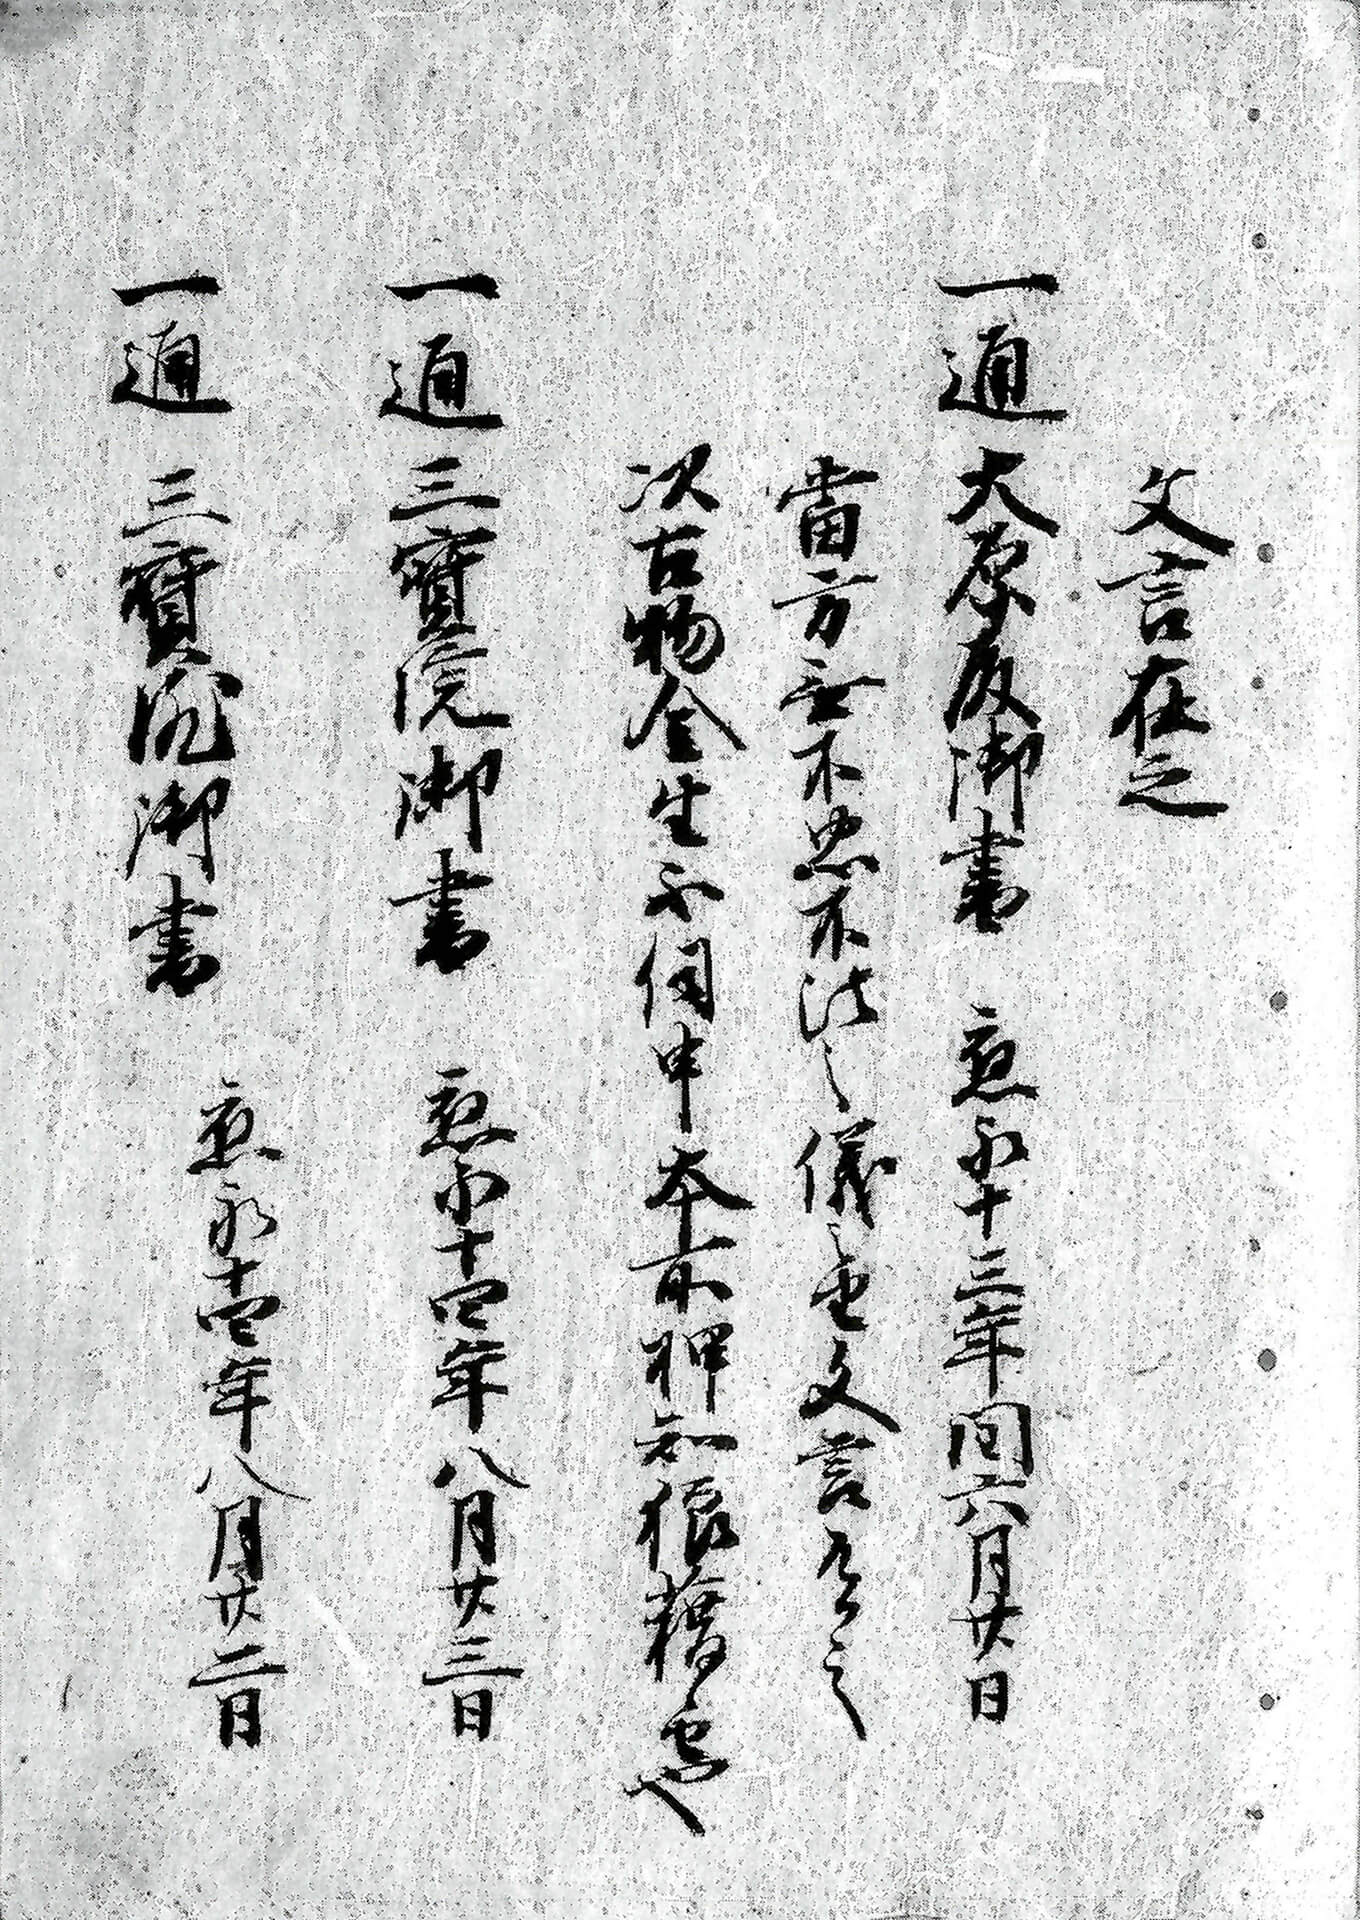 文言在之
一通 大原殿御書 應永十三年閏六月廿日
當方無不忠不法之儀之由文言有之
次古物全生不伺申本所押知狼藉
一通 三寶院御書 應永十四年八月廿三日
一通 三寶院御書 應永十四年八月廿二日